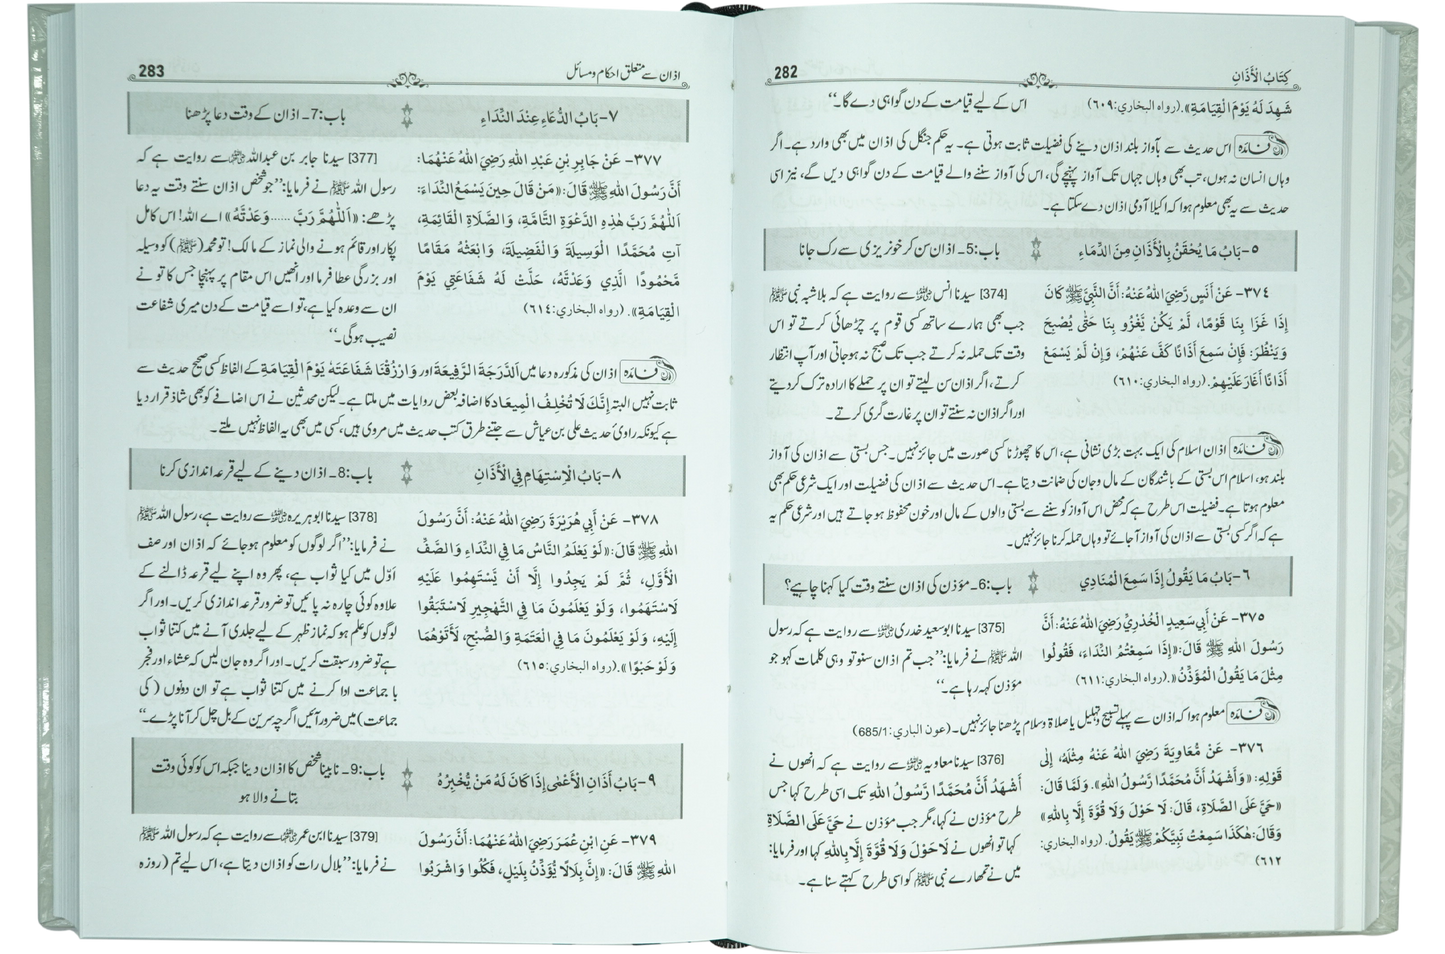 282
كِتَابُ الْأَذَانِ
شَهِدَ لَهُ يَوْمَ الْقِيَامَةِ». (رواه البخاري:٦٠٩)
اس کے لیے قیامت کے دن گواہی دے گا۔‘‘
فائدہ اس حدیث سے بآواز بلند اذان دینے کی فضیلت ثابت ہوتی ہے۔ یہ حکم جنگل کی اذان میں بھی وارد ہے۔ اگر
وہاں انسان نہ ہوں، تب بھی وہاں جہاں تک آواز پہنچے گی، اس کی آواز سننے والے قیامت کے دن گواہی دیں گے، نیز اسی
حدیث سے یہ بھی معلوم ہوا کہ اکیلا آدمی اذان دے سکتا ہے۔
٥- بَابُ مَا يُحْقَنُ بِالْأَذَانِ مِنَ الدِّمَاءِ
باب:5۔ اذان سن کر خونریزی سے رک جانا
٣٧٤- عَنْ أَنَسٍ رَّضِيَ اللهُ عَنْهُ: أَنَّ النَّبِيَّ ﷺ كَانَ
إِذَا غَزَا بِنَا قَوْمًا، لَمْ يَكُنْ يَغْزُو بِنَا حَتَّى يُصْبِحَ
وَيَنْظُرَ: فَإِنْ سَمِعَ أَذَانًا كَفَّ عَنْهُمْ، وَإِنْ لَّمْ يَسْمَعْ
أَذَانًا أَغَارَ عَلَيْهِمْ. (رواه البخاري:٦١٠)
[374] سیدنا انس رضی اللہ عنہ سے روایت ہے کہ بلاشبہ نبی ﷺ
جب بھی ہمارے ساتھ کسی قوم پر چڑھائی کرتے تو اس
وقت تک حملہ نہ کرتے جب تک صبح نہ ہو جاتی اور آپ انتظار
کرتے، اگر اذان سن لیتے تو ان پر حملے کا ارادہ ترک کر دیتے
اور اگر اذان نہ سنتے تو ان پر غارت گری کرتے۔
فائدہ اذان اسلام کی ایک بہت بڑی نشانی ہے، اس کا چھوڑنا کسی صورت میں جائز نہیں۔ جس بستی سے اذان کی آواز
بلند ہو، اسلام اس بستی کے باشندگان کے مال و جان کی ضمانت دیتا ہے۔ اس حدیث سے اذان کی فضیلت اور ایک شرعی حکم بھی
معلوم ہوتا ہے۔ فضیلت اس طرح ہے کہ محض اس آواز کو سننے سے بستی والوں کے مال اور خون محفوظ ہو جاتے ہیں اور شرعی حکم یہ
ہے کہ اگر کسی بستی سے اذان کی آواز آ جائے تو وہاں حملہ کرنا جائز نہیں۔
٦- بَابُ مَا يَقُولُ إِذَا سَمِعَ الْمُنَادِي
باب:6۔ مؤذن کی اذان سنتے وقت کیا کہنا چاہیے؟
٣٧٥- عَنْ أَبِي سَعِيدٍ الْخُدْرِيِّ رَضِيَ اللهُ عَنْهُ: أَنَّ
رَسُولَ اللهِ ﷺ قَالَ: «إِذَا سَمِعْتُمُ النِّدَاءَ، فَقُولُوا
مِثْلَ مَا يَقُولُ الْمُؤَذِّنُ». (رواه البخاري:٦١١)
[375] سیدنا ابو سعید خدری رضی اللہ عنہ سے روایت ہے کہ رسول
اللہ ﷺ نے فرمایا: ’’جب تم اذان سنو تو وہی کلمات کہو جو
مؤذن کہہ رہا ہے۔‘‘
فائدہ معلوم ہوا کہ اذان سے پہلے تسبیح و تہلیل یا صلاۃ و سلام پڑھنا جائز نہیں۔ (عون الباري: 685/1)
٣٧٦- عَنْ مُّعَاوِيَةَ رَضِيَ اللهُ عَنْهُ مِثْلَهُ، إِلَى
قَوْلِهِ: «وَأَشْهَدُ أَنَّ مُحَمَّدًا رَّسُولُ اللهِ». وَلَمَّا قَالَ:
«حَيَّ عَلَى الصَّلَاةِ، قَالَ: لَا حَوْلَ وَلَا قُوَّةَ إِلَّا بِاللهِ»
وَقَالَ: هٰكَذَا سَمِعْتُ نَبِيَّكُمْ ﷺ يَقُولُ. (رواه البخاري:
٦١٢)
[376] سیدنا معاویہ رضی اللہ عنہ سے روایت ہے کہ انھوں نے
أَشْهَدُ أَنَّ مُحَمَّدًا رَّسُولُ اللهِ تک اسی طرح کہا جس
طرح مؤذن نے کہا، مگر جب مؤذن نے حَيَّ عَلَى الصَّلَاةِ
کہا تو انھوں نے لَا حَوْلَ وَلَا قُوَّةَ إِلَّا بِاللهِ کہا اور فرمایا:
میں نے تمھارے نبی ﷺ کو اسی طرح کہتے سنا ہے۔
283
اذان سے متعلق احکام و مسائل
٧- بَابُ الدُّعَاءِ عِنْدَ النِّدَاءِ
باب:7۔ اذان کے وقت دعا پڑھنا
٣٧٧- عَنْ جَابِرِ بْنِ عَبْدِ اللهِ رَضِيَ اللهُ عَنْهُمَا:
أَنَّ رَسُولَ اللهِ ﷺ قَالَ: «مَنْ قَالَ حِينَ يَسْمَعُ النِّدَاءَ:
اَللّٰهُمَّ رَبَّ هٰذِهِ الدَّعْوَةِ التَّامَّةِ، وَالصَّلَاةِ الْقَائِمَةِ،
آتِ مُحَمَّدًا الْوَسِيلَةَ وَالْفَضِيلَةَ، وَابْعَثْهُ مَقَامًا
مَّحْمُودًا الَّذِي وَعَدْتَّهُ، حَلَّتْ لَهُ شَفَاعَتِي يَوْمَ
الْقِيَامَةِ». (رواه البخاري:٦١٤)
[377] سیدنا جابر بن عبداللہ رضی اللہ عنہ سے روایت ہے کہ
رسول اللہ ﷺ نے فرمایا: ’’جو شخص اذان سنتے وقت یہ دعا
پڑھے: «اَللّٰهُمَّ رَبَّ ...... وَعَدْتَّهُ» اے اللہ! اس کامل
پکار اور قائم ہونے والی نماز کے مالک! تو محمد (ﷺ) کو وسیلہ
اور بزرگی عطا فرما اور انھیں اس مقام پر پہنچا جس کا تو نے
ان سے وعدہ کیا ہے، تو اسے قیامت کے دن میری شفاعت
نصیب ہوگی۔‘‘
فائدہ اذان کی مذکورہ دعا میں اَلدَّرَجَةَ الرَّفِيعَةَ اور وَارْزُقْنَا شَفَاعَتَهُ يَوْمَ الْقِيَامَةِ کے الفاظ کسی صحیح حدیث سے
ثابت نہیں البتہ إِنَّكَ لَا تُخْلِفُ الْمِيعَادَ کا اضافہ بعض روایات میں ملتا ہے۔ لیکن محدثین نے اس اضافے کو بھی شاذ قرار دیا
ہے کیونکہ راویٔ حدیث علی بن عیاش سے جتنے طرق کتب حدیث میں مروی ہیں، کسی میں بھی یہ الفاظ نہیں ملتے۔
٨- بَابُ الْاِسْتِهَامِ فِي الْأَذَانِ
باب:8۔ اذان دینے کے لیے قرعہ اندازی کرنا
٣٧٨- عَنْ أَبِي هُرَيْرَةَ رَضِيَ اللهُ عَنْهُ: أَنَّ رَسُولَ
اللهِ ﷺ قَالَ: «لَوْ يَعْلَمُ النَّاسُ مَا فِي النِّدَاءِ وَالصَّفِّ
الْأَوَّلِ، ثُمَّ لَمْ يَجِدُوا إِلَّا أَنْ يَّسْتَهِمُوا عَلَيْهِ
لَاسْتَهَمُوا، وَلَوْ يَعْلَمُونَ مَا فِي التَّهْجِيرِ لَاسْتَبَقُوا
إِلَيْهِ، وَلَوْ يَعْلَمُونَ مَا فِي الْعَتَمَةِ وَالصُّبْحِ، لَأَتَوْهُمَا
وَلَوْ حَبْوًا». (رواه البخاري:٦١٥)
[378] سیدنا ابو ہریرہ رضی اللہ عنہ سے روایت ہے، رسول اللہ ﷺ
نے فرمایا: ’’اگر لوگوں کو معلوم ہو جائے کہ اذان اور صف
اوّل میں کیا ثواب ہے، پھر وہ اپنے لیے قرعہ ڈالنے کے
علاوہ کوئی چارہ نہ پائیں تو ضرور قرعہ اندازی کریں۔ اور اگر
لوگوں کو علم ہو کہ نماز ظہر کے لیے جلدی آنے میں کتنا ثواب
ہے تو ضرور سبقت کریں۔ اور اگر وہ جان لیں کہ عشاء اور فجر
با جماعت ادا کرنے میں کتنا ثواب ہے تو ان دونوں (کی
جماعت) میں ضرور آئیں اگرچہ سرین کے بل چل کر آنا پڑے۔‘‘
٩- بَابُ أَذَانِ الْأَعْمٰى إِذَا كَانَ لَهُ مَنْ يُّخْبِرُهُ
باب:9۔ نابینا شخص کا اذان دینا جبکہ اس کو کوئی وقت
بتانے والا ہو
٣٧٩- عَنِ ابْنِ عُمَرَ رَضِيَ اللهُ عَنْهُمَا: أَنَّ رَسُولَ
اللهِ ﷺ قَالَ: «إِنَّ بِلَالًا يُّؤَذِّنُ بِلَيْلٍ، فَكُلُوا وَاشْرَبُوا
[379] سیدنا ابن عمر رضی اللہ عنہما سے روایت ہے کہ رسول اللہ ﷺ
نے فرمایا: ’’بلال رات کو اذان دیتا ہے، اس لیے تم (روزہ